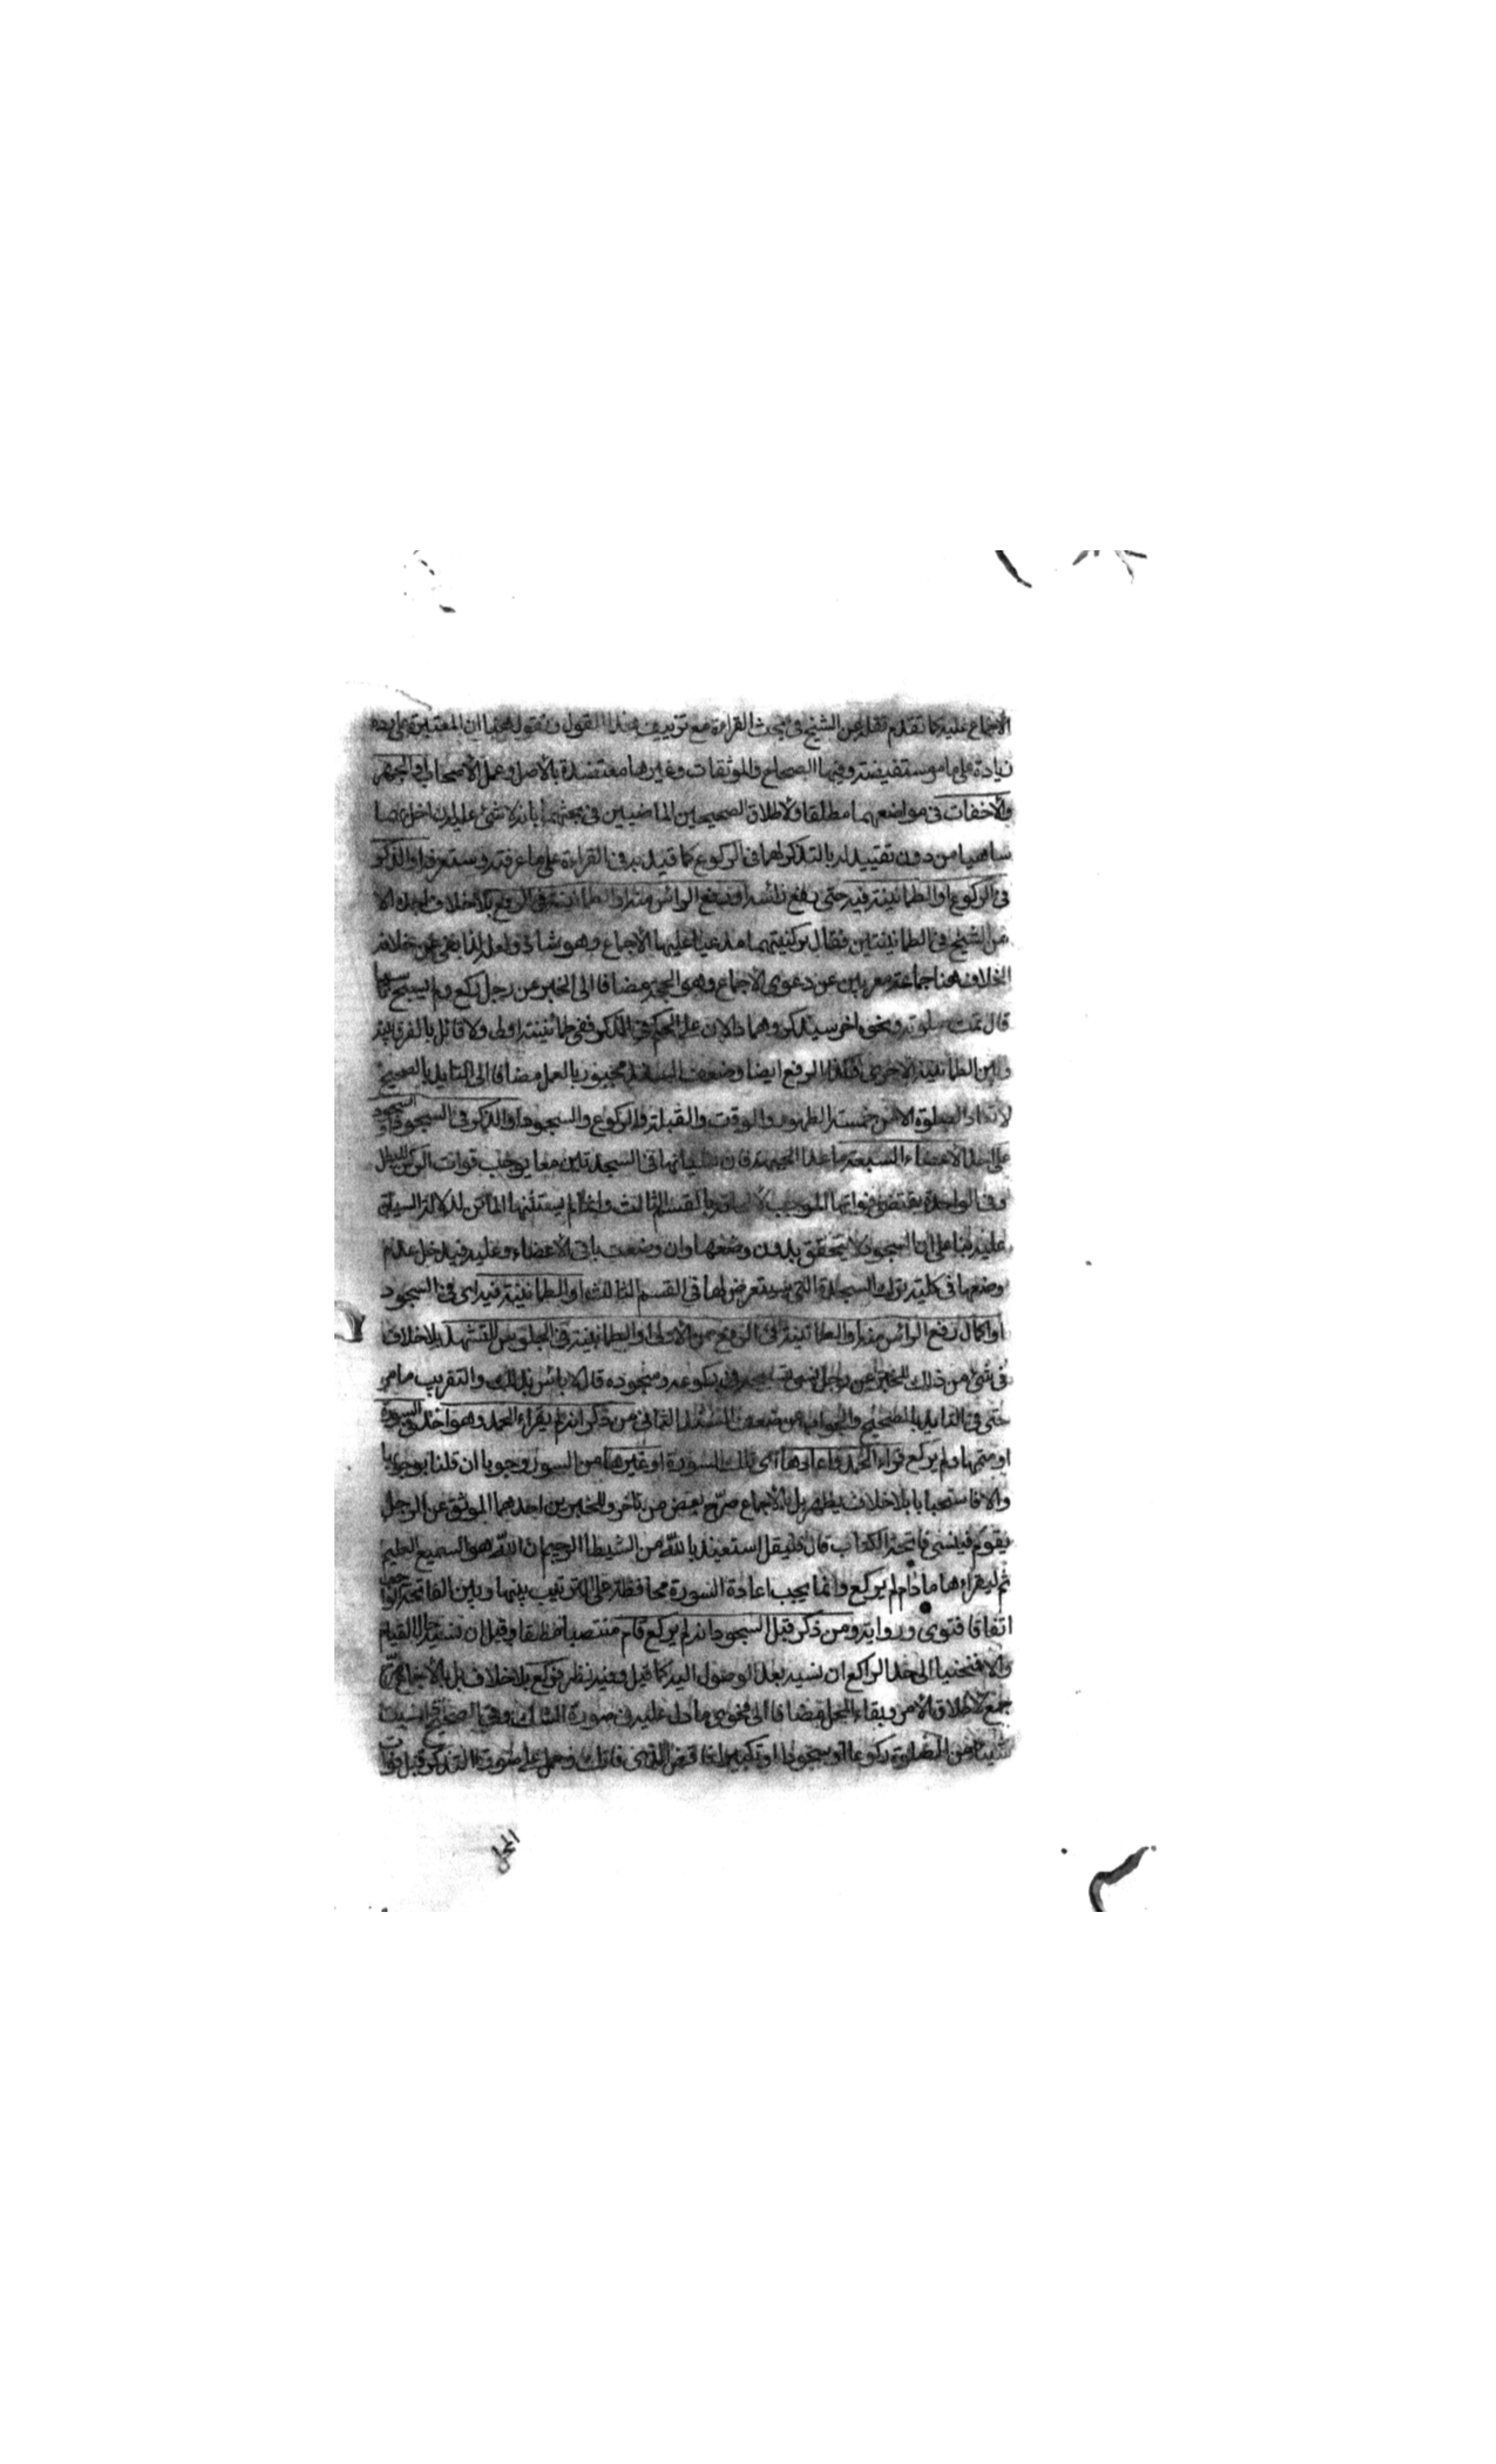 الاجماع عليه كما تقدم نقله عن الشيخ في بحث القراءة مع تزييف هذا القول ونقول هنا ان المعتبرة على رده
زيادة على ما مر مستفيضة وفيها الصحاح والموثقات وغيرها معتضدة بالاصل وعمل الاصحاب او الجهر
والاخفات في مواضعهما مطلقا ولاطلاق الصحيحين الماضيين في بحثهما بانه لا شئ عليه ان اخل بهما
ساهيا من دون تقييد له بالتذكر لهما في الركوع كما قيد به في القراءة على ما عرفته وستعرفه او الذكر
في الركوع او الطمانينة فيه حتى يرفع رأسه او رفع الرأس منه او الطمانينة في الرفع بلا خلاف اجده الا
عن الشيخ في الطمانينتين فقال بركنيتهما مدعيا عليها الاجماع وهو شاذ ولعله لذا نفى عن خلافه
الخلاف هنا جماعة معربين عن دعوى الاجماع وهو الحجة مضافا الى الخبر عن رجل ركع ولم يسبح ناسيا
قال تمت صلوته ونحوه اخر سيذكر وهما دالان على الحكم في الذكر ففي طمانينته اولى ولا قائل بالفرق بينه
وبين الطمانينة الاخرى فكذا الرفع ايضا وضعف السند مجبور بالعمل مضافا الى التاييد بالصحيح
لا تعاد الصلوة الا من خمسة الطهور والوقت والقبلة والركوع والسجود او الذكر في السجود او السجود
على احد الاعضاء السبعة ما عدا الجبهة فان نسيانها في السجدتين معا يوجب فوات الركن المبطل
وفي الواحدة يقتضي فواتها الموجب لالحاقه بالقسم الثالث وانما لم يستثنها الماتن لدلالة السياق
عليه بناء على ان السجود لا يتحقق بدون وضعها وان وضعت باقي الاعضاء وعليه فيدخل عدم
وضعها في كلية ترك السجدة التي سيتعرض لها في القسم الثالث او الطمانينة فيه اى في السجود
او اكمال رفع الرأس منه او الطمانينة في الرفع من الاولى او الطمانينة في الجلوس للتشهد بلا خلاف
في شئ من ذلك للخبر عن رجل نسي تسبيحه في ركوعه وسجوده قال لا بأس بذلك والتقريب ما مر
حتى في التاييد بالصحيح والجواب عن ضعف السند الثاني من ذكر انه لم يقراء الحمد وهو اخذ في السورة
او متمها ولم يركع قراء الحمد واعادها اى تلك السورة او غيرها من السور وجوبا ان قلنا بوجوبها
والا فاستحبابا بلا خلاف يظهر بل بالاجماع صرح بعض من تاخر وللخبرين احدهما الموثق عن الرجل
يقوم فينسى فاتحة الكتاب قال فليقل استعيذ بالله من الشيطا الرجيم ان الله هو السميع العليم
ثم ليقراءها ما دام لم يركع وانما يجب اعادة السورة محافظة على الترتيب بينها وبين الفاتحة الواجب
اتفاقا فتوى ورواية ومن ذكر قبل السجود انه لم يركع قام منتصبا مطلقا او قبل ان نسيه حال القيام
والا فمنحنيا الى حد الراكع ان نسيه بعد الوصول اليه كما قيل وفيه نظر فركع بلا خلاف بل بالاجماع صرح
جمع لاطلاق الامر وبقاء المحل مضافا الى فحوى ما دل عليه في صورة الشك وفي الصحيح اذا نسيت
شيئا من الصلوة ركوعا او سجودا او تكبيرا فاقض الذي فاتك وحمل على صورة التذكر قبل فوات
المحل